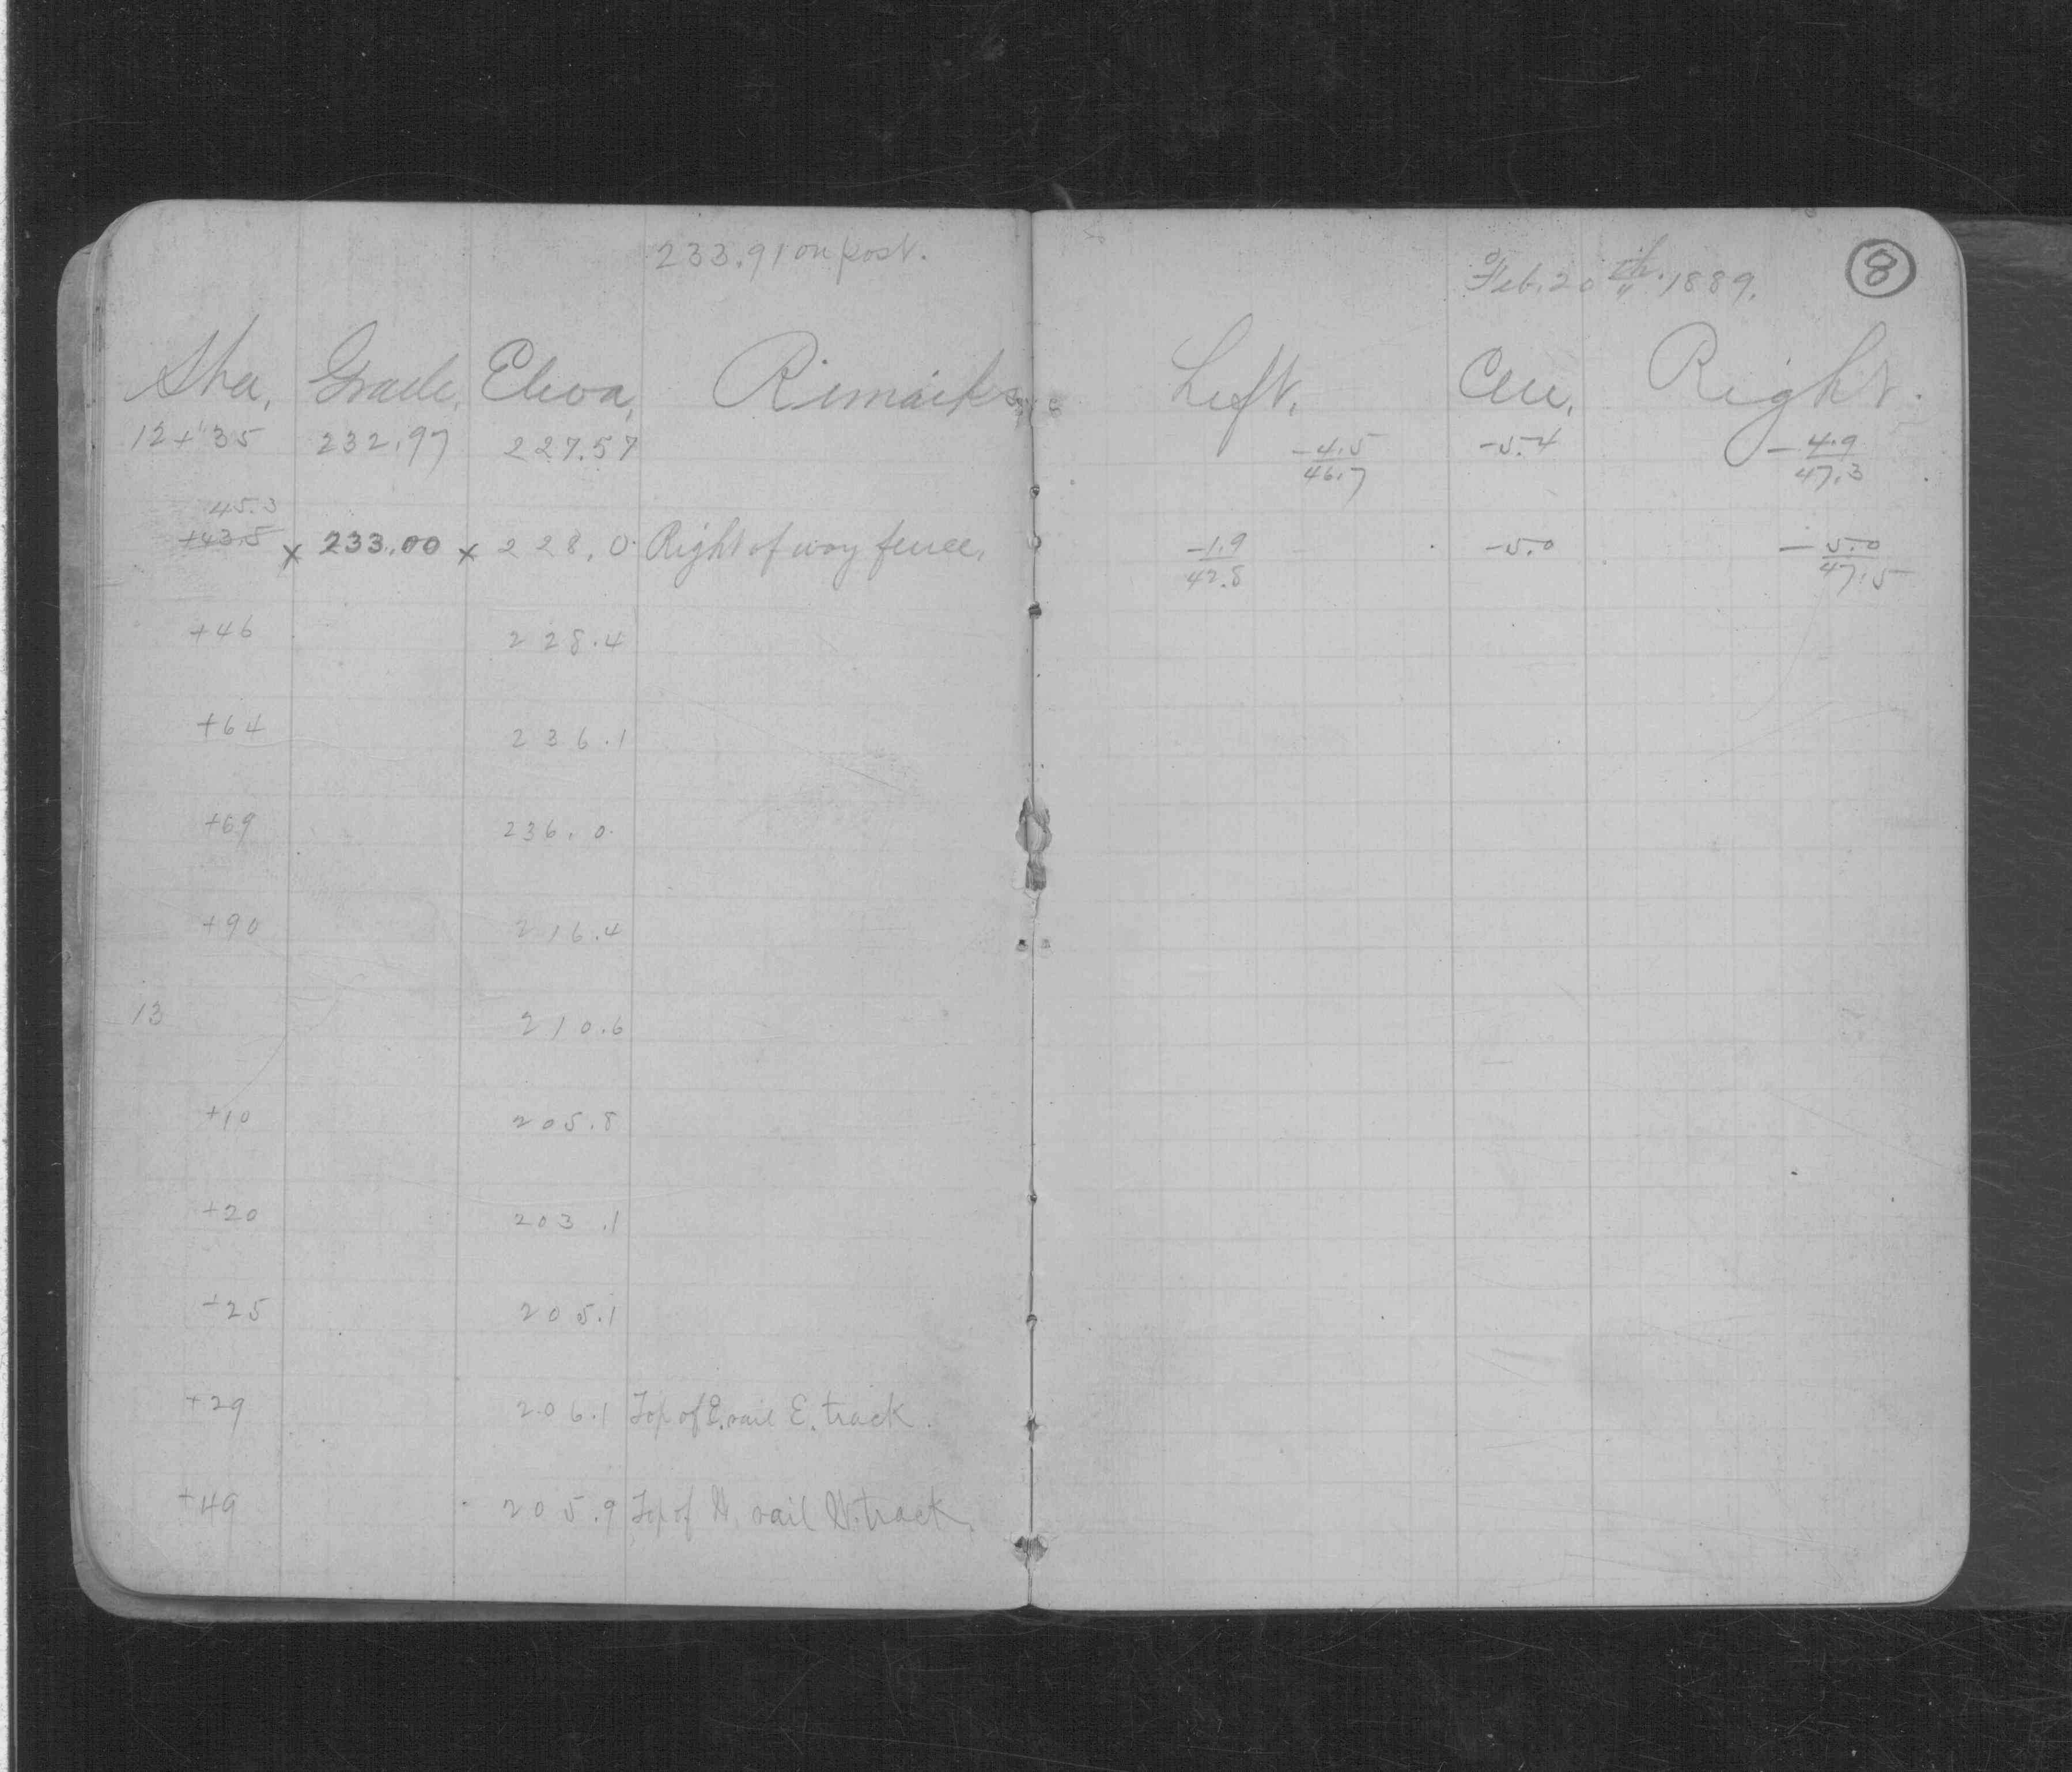 233.91 on post.
Feb. 20th. 1889.
8
Sta. Grade. Eleva. Remarks Left. Cen. Right.
12+35 232.97 227.57 -4.5/46.7 -5.4 -4.9/47.3
45.3
+43.5 x 233.00 x 228.0 Right of way fence. -1.9/42.8 -5.0 -5.0/47.5
+46 228.4
+64 236.1
+69 236.0
+90 216.4
13 210.6
+10 205.8
+20 203.1
+25 205.1
+29 206.1 Top of E. rail E. track.
+49 205.9 Top of W. rail W. track.